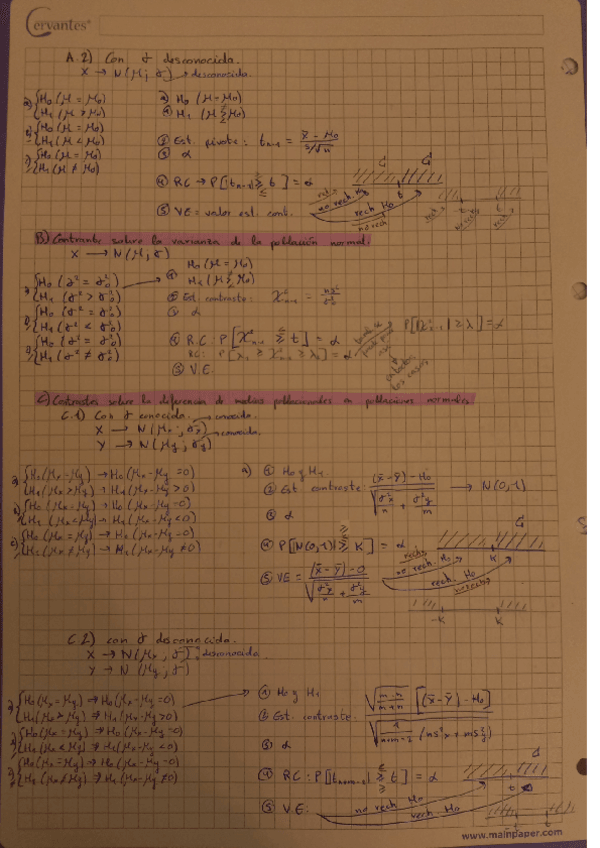 Cervantes
A.2) Con σ desconocida.
X → N(μ; σ) → desconocida.
a) {H₀ (μ = μ₀)
H₁ (μ > μ₀)
b) {H₀ (μ = μ₀)
H₁ (μ < μ₀)
c) {H₀ (μ = μ₀)
H₁ (μ ≠ μ₀)
① H₀ (μ = μ₀)
H₁ (μ ≷ μ₀)
② Est. pivote: tₙ₋₁ = (x̄ - μ₀) / (s/√n)
③ α
④ RC → P[|tₙ₋₁| ≥ t] = α
⑤ VE = valor est. cont.
no rech. H₀
rech. H₀
B) Contraste sobre la varianza de la población normal.
X → N(μ; σ)
a) {H₀ (σ² = σ₀²)
H₁ (σ² > σ₀²)
b) {H₀ (σ² = σ₀²)
H₁ (σ² < σ₀²)
c) {H₀ (σ² = σ₀²)
H₁ (σ² ≠ σ₀²)
① H₀ (μ = μ₀)
H₁ (μ ≷ μ₀)
② Est. contraste: χ²ₙ₋₁ = ns²/σ₀²
③ α
④ R.C: P[χ²ₙ₋₁ ≷ t] = α
⑤ V.E.
C) Contrastes sobre la diferencia de medias poblacionales en poblaciones normales
C.1) Con σ conocida.
X → N(μₓ; σₓ) → conocida.
Y → N(μy; σy) → conocida.
a) {H₀ (μₓ = μy) → H₀ (μₓ - μy = 0)
H₁ (μₓ > μy) → H₁ (μₓ - μy > 0)
b) {H₀ (μₓ = μy) → H₀ (μₓ - μy = 0)
H₁ (μₓ < μy) → H₁ (μₓ - μy < 0)
c) {H₀ (μₓ = μy) → H₀ (μₓ - μy = 0)
H₁ (μₓ ≠ μy) → H₁ (μₓ - μy ≠ 0)
a) ① H₀ y H₁
② Est. contraste: ((x̄ - ȳ) - H₀) / √(σ²ₓ/n + σ²y/m) → N(0,1)
③ α
④ P[|N(0,1)| ≷ K] = α
⑤ VE = ((x̄ - ȳ) - 0) / √(σ²ₓ/n + σ²y/m)
no rech. H₀
rech. H₀
-K K
C.2) con σ desconocida.
X → N(μₓ, σ) desconocida
Y → N(μy; σ)
a) {H₀ (μₓ = μy) → H₀ (μₓ - μy = 0)
H₁ (μₓ > μy) → H₁ (μₓ - μy > 0)
b) {H₀ (μₓ = μy) → H₀ (μₓ - μy = 0)
H₁ (μₓ < μy) → H₁ (μₓ - μy < 0)
c) {H₀ (μₓ = μy) → H₀ (μₓ - μy = 0)
H₁ (μₓ ≠ μy) → H₁ (μₓ - μy ≠ 0)
① H₀ y H₁
② Est. contraste: √(m·n/(m+n)) [(x̄ - ȳ) - H₀] / √(1/(n+m-2) (ns²x + ms²y))
③ α
④ RC: P[|tₙ₊ₘ₋₂| ≷ t] = α
⑤ V.E.
no rech H₀
rech H₀
www.mainpaper.com